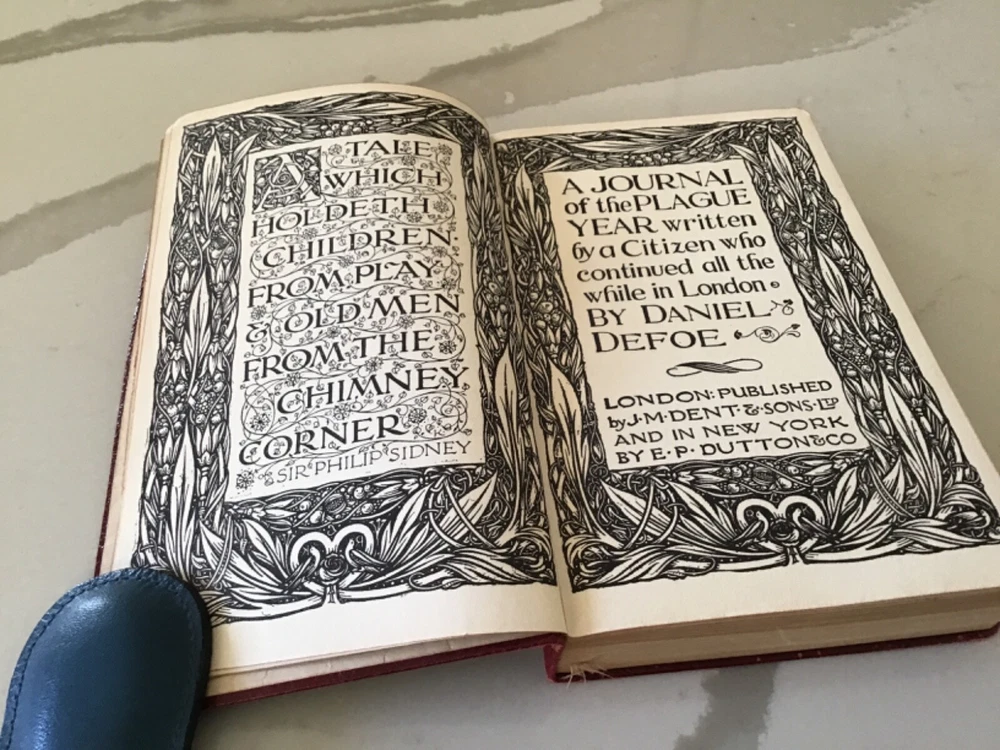 A TALE
WHICH
HOLDETH
CHILDREN
FROM PLAY
& OLD MEN
FROM THE
CHIMNEY
CORNER
SIR PHILIP SIDNEY
A JOURNAL
of the PLAGUE
YEAR written
by a Citizen who
continued all the
while in London
BY DANIEL
DEFOE
LONDON: PUBLISHED
by J·M·DENT·&·SONS·LTD
AND IN NEW YORK
BY E·P·DUTTON & CO